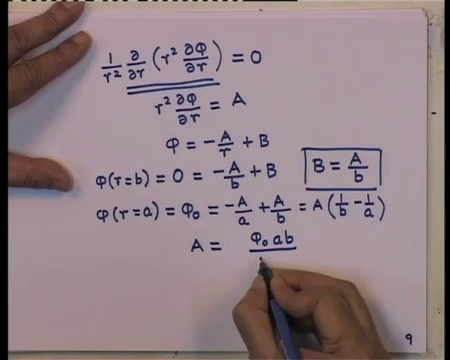 1/r² ∂/∂r (r² ∂φ/∂r) = 0
r² ∂φ/∂r = A
φ = -A/r + B
φ(r=b) = 0 = -A/b + B   B = A/b
φ(r=a) = φ₀ = -A/a + A/b = A(1/b - 1/a)
A = φ₀ab
9